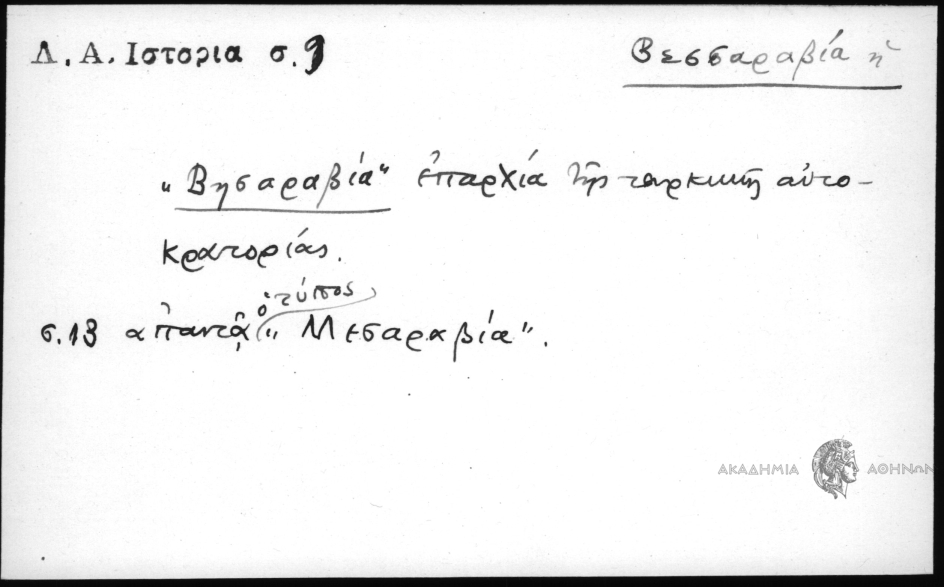 Δ.Α. Ιστορια σ. 9
Βεσσαραβία ἡ
"Βησαραβία" ἐπαρχία τῆς τουρκικῆς αὐτο-
κρατορίας.
σ.13 απαντᾷ ὁ τύπος "Μεσαραβία".
ΑΚΑΔΗΜΙΑ ΑΘΗΝΩΝ